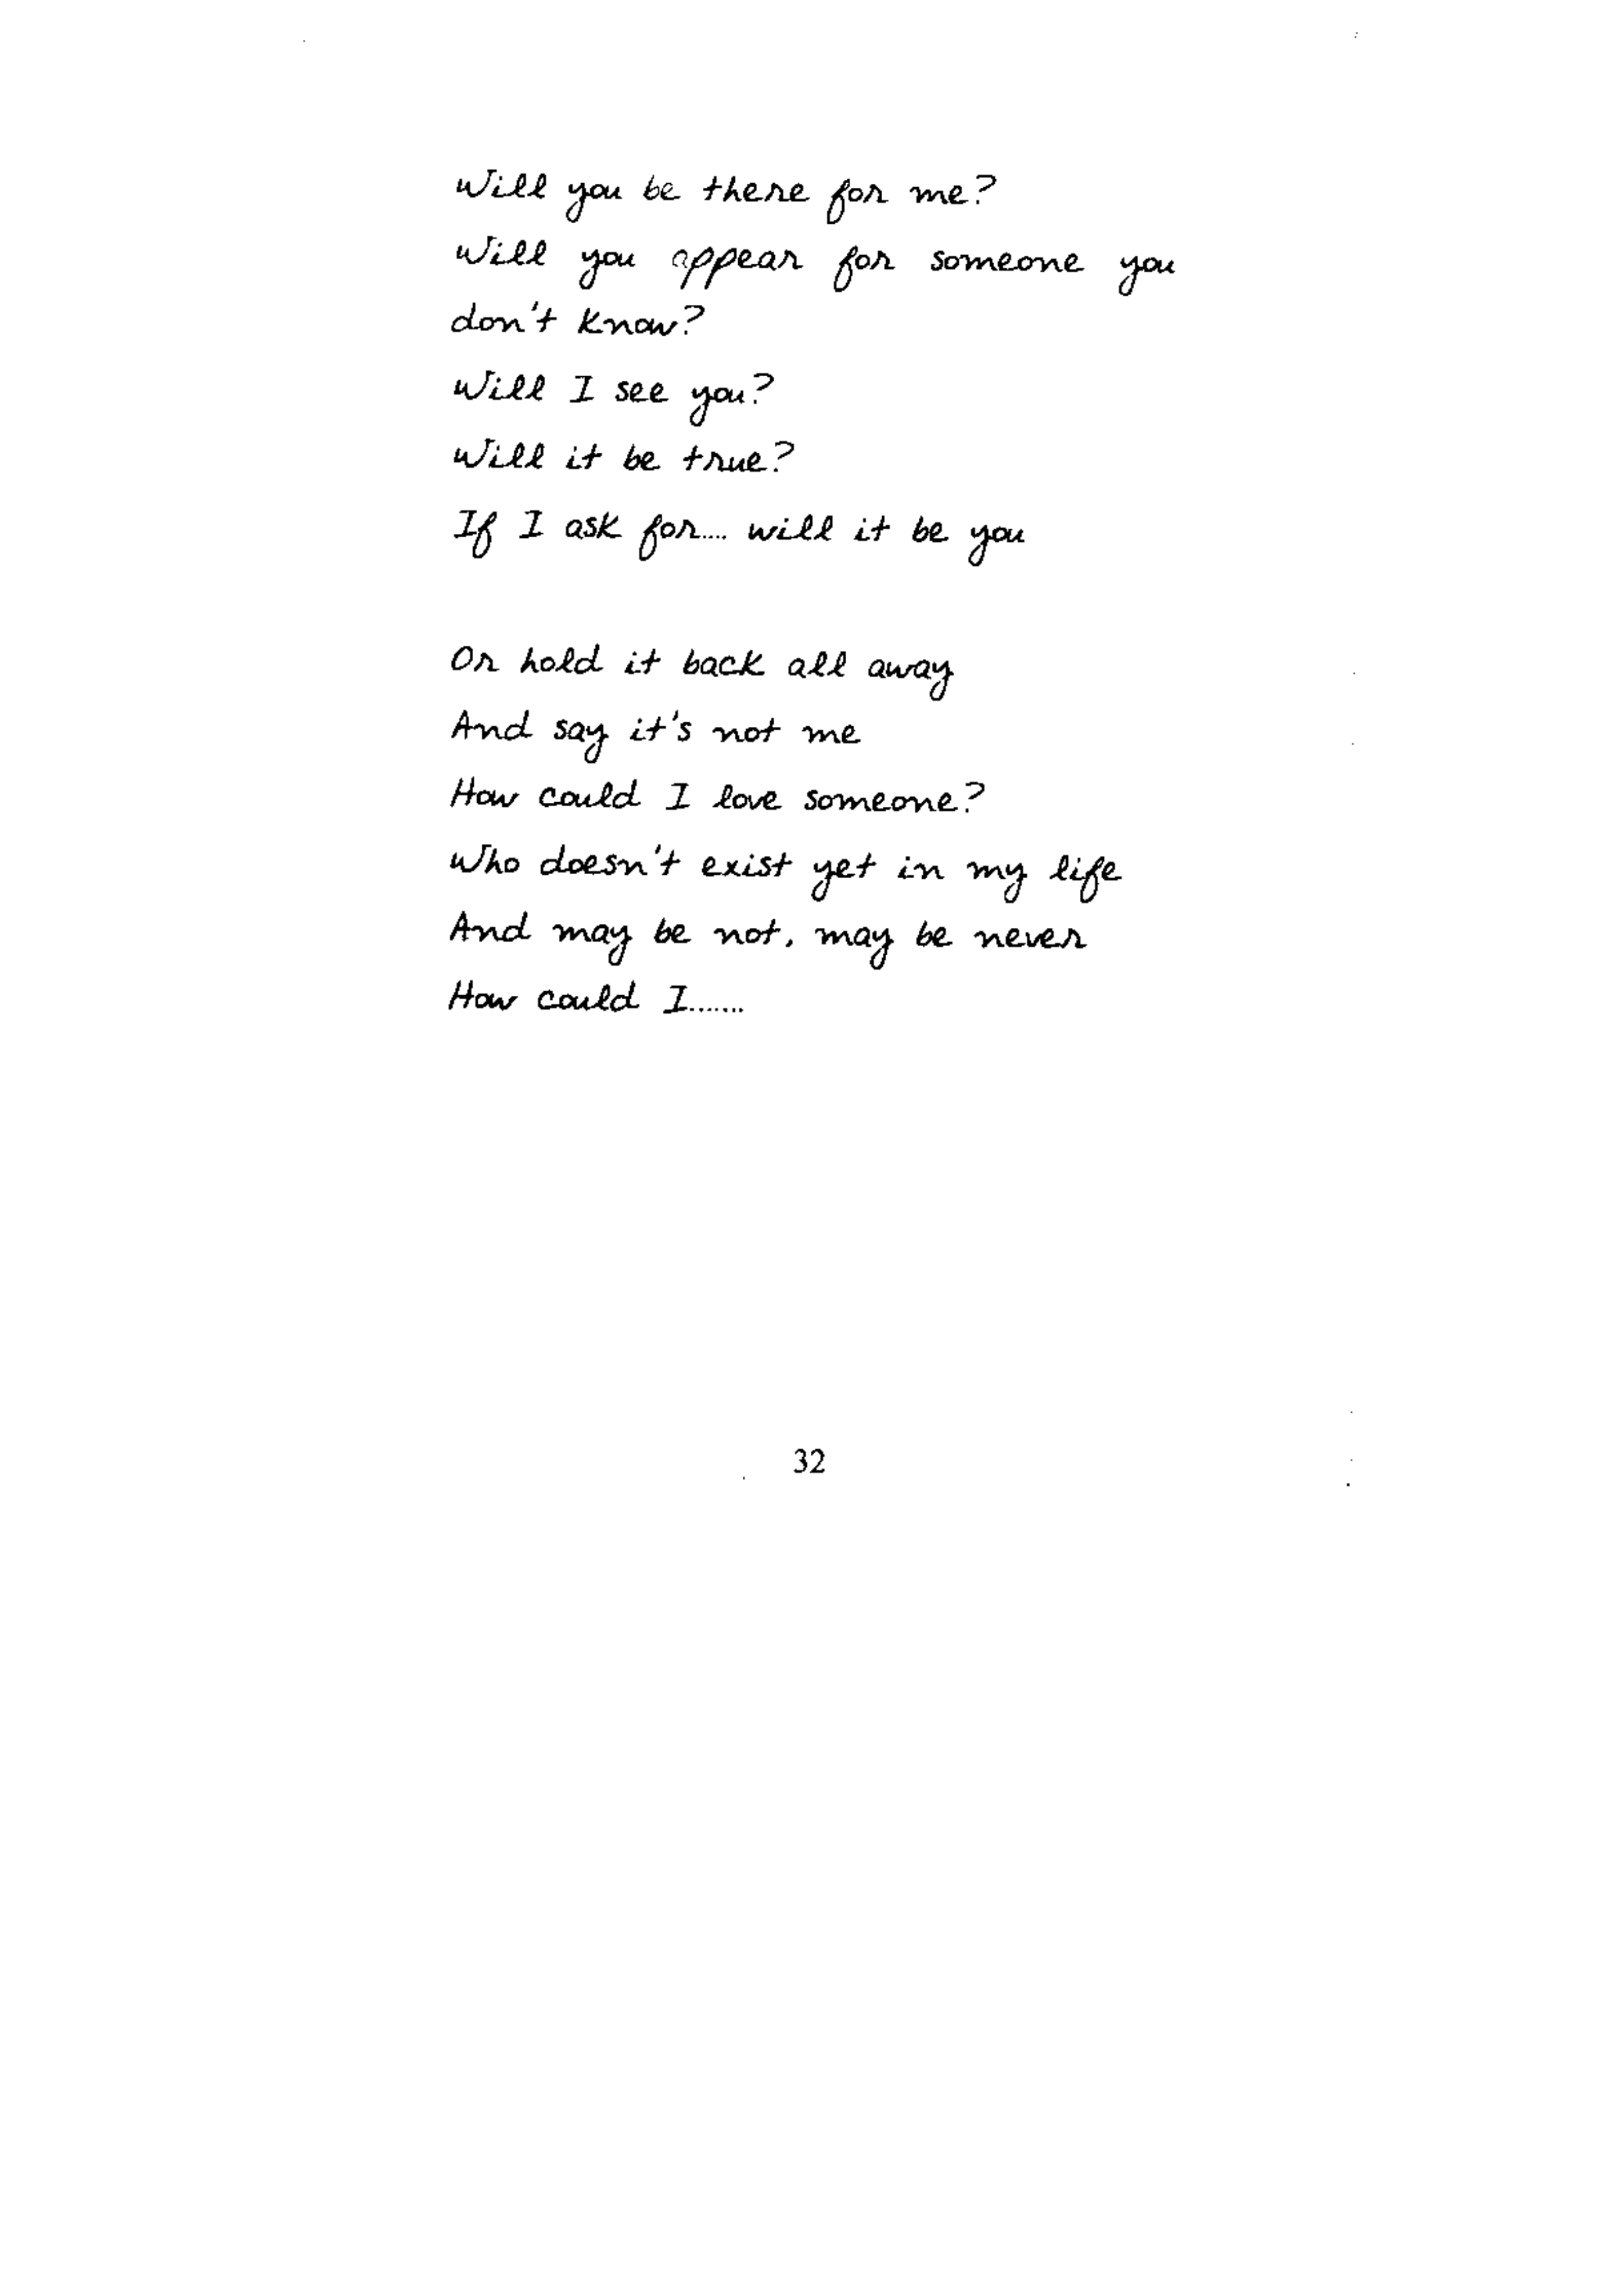 Will you be there for me?
Will you appear for someone you
don't know?
Will I see you?
Will it be true?
If I ask for.... will it be you
Or hold it back all away
And say it's not me
How could I love someone?
Who doesn't exist yet in my life
And may be not, may be never
How could I.......
32